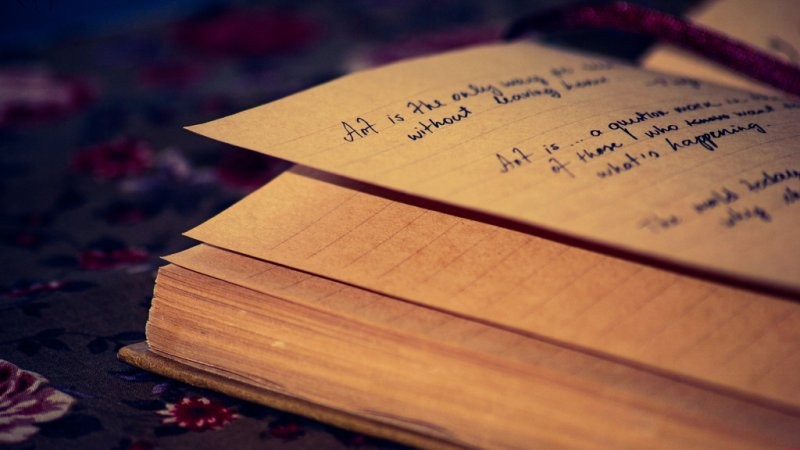 Art is the only way to
without leaving home
Art is ... a question mark in
of those who know want
what's happening.
The world today
why